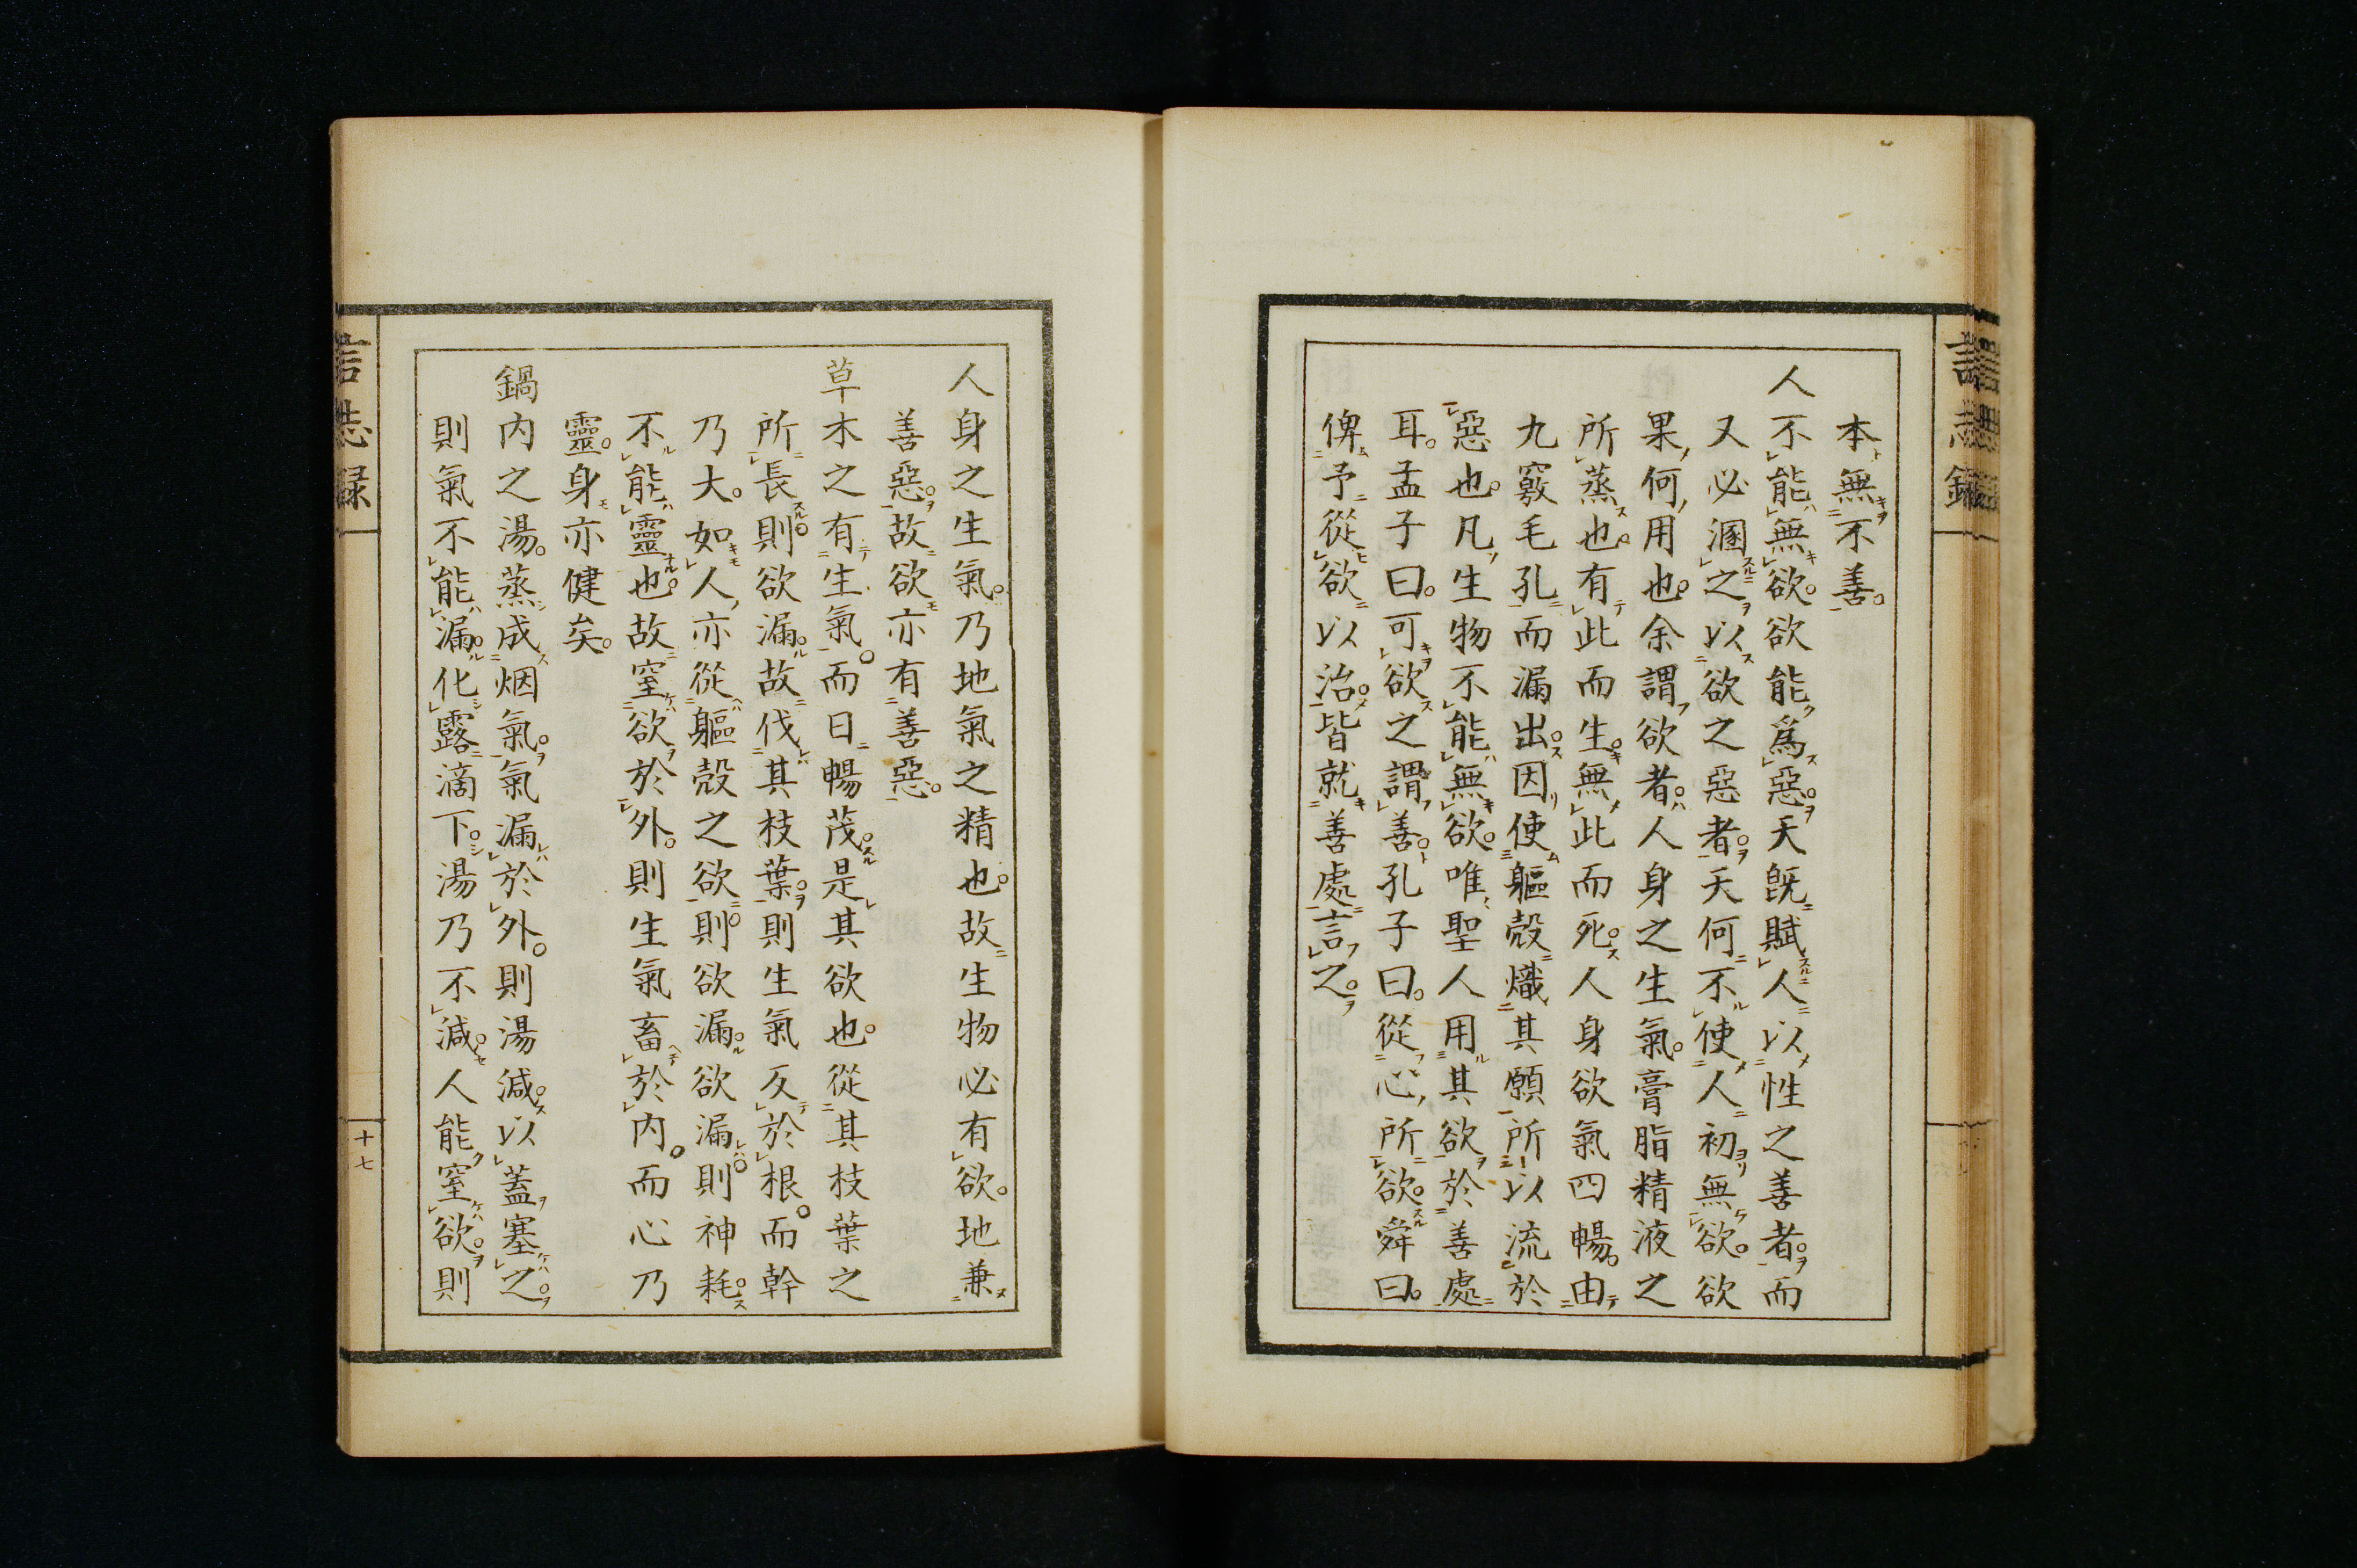 言志録
本無不善。
人不能無欲。欲能爲惡。天既賦人以性之善者。而
又必溷之以欲之惡者。天何不使人初無欲。欲
果何用也。余謂欲者。人身之生氣。膏脂精液之
所蒸也。有此而生。無此而死。人身欲氣四暢。由
九竅毛孔而漏出。因使軀殼熾其願。所以流於
惡也。凡生物不能無欲。唯聖人用其欲於善處
耳。孟子曰。可欲之謂善。孔子曰。從心所欲。舜曰。
俾予從欲以治。皆就善處言之。
人身之生氣。乃地氣之精也。故生物必有欲。地兼
善惡。故欲亦有善惡。
草木之有生氣。而日暢茂。是其欲也。從其枝葉之
所長。則欲漏。故伐其枝葉。則生氣反於根。而幹
乃大。如人亦從軀殼之欲。則欲漏。欲漏則神耗。
不能靈也。故窒欲於外。則生氣畜於内。而心乃
靈。身亦健矣。
鍋内之湯。蒸成烟氣。氣漏於外。則湯減。以蓋塞之。
則氣不能漏。化露滴下。湯乃不減。人能窒欲。則
言志録
十七